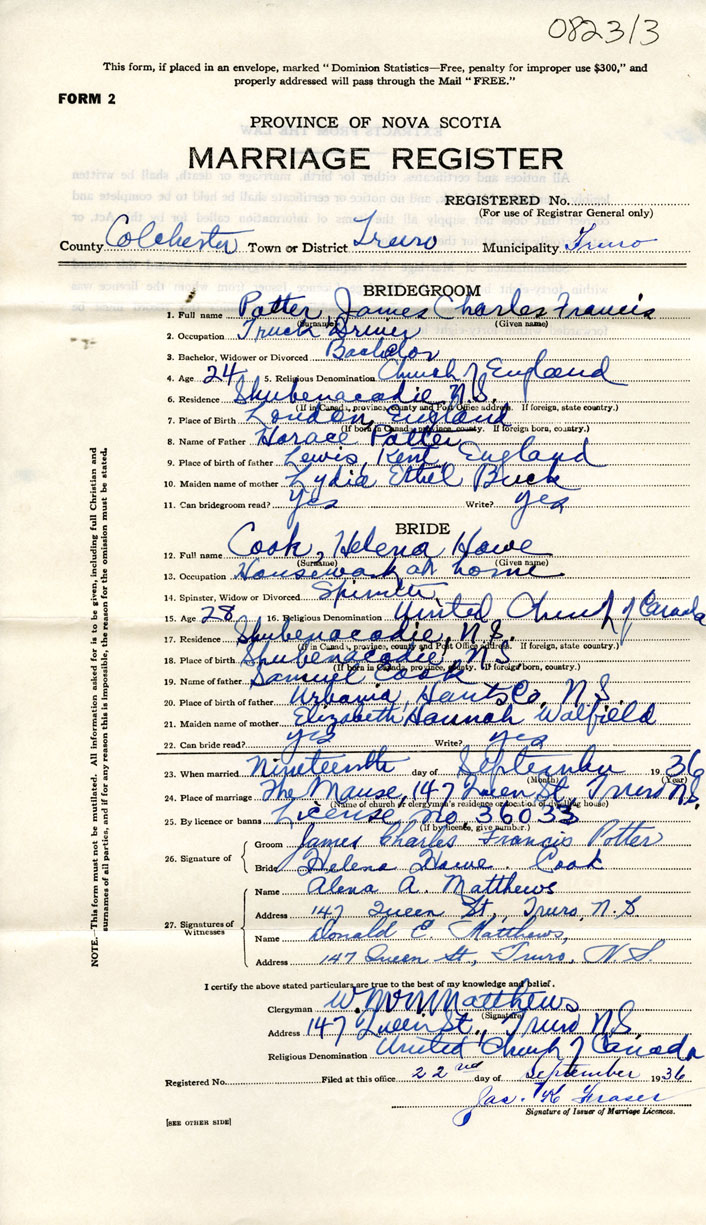 082313
This form, if placed in an envelope, marked "Dominion Statistics—Free, penalty for improper use $300," and
properly addressed will pass through the Mail "FREE."
FORM 2
PROVINCE OF NOVA SCOTIA
MARRIAGE REGISTER
REGISTERED No.
(For use of Registrar General only)
County Colchester Town or District Truro Municipality Truro
BRIDEGROOM
1. Full name Potter James Charles Francis
(Surname) (Given name)
2. Occupation Truck Driver
3. Bachelor, Widower or Divorced Bachelor
4. Age 24 5. Religious Denomination Church of England
6. Residence Shubenacadie N.S.
(If in Canada, province, county and Post Office address. If foreign, state country.)
7. Place of Birth London, England
(If born in Canada, province, county. If foreign born, country.)
8. Name of Father Horace Potter
9. Place of birth of father Lewis, Kent, England
10. Maiden name of mother Lydia Ethel Buck
11. Can bridegroom read? yes Write? yes
BRIDE
12. Full name Cook, Helena Howe
(Surname) (Given name)
13. Occupation Housework at home
14. Spinster, Widow or Divorced Spinster
15. Age 28 16. Religious Denomination United Church of Canada
17. Residence Shubenacadie, N.S.
(If in Canada, province, county and Post Office address. If foreign, state country.)
18. Place of birth Shubenacadie, N.S.
(If born in Canada, province, county. If foreign born, country.)
19. Name of father Samuel Cook
20. Place of birth of father Urbania, Hants Co, N.S.
21. Maiden name of mother Elizabeth Hannah Walfield
22. Can bride read? yes Write? yes
23. When married Nineteenth day of September 1936
(Month) (Year)
24. Place of marriage The Manse, 147 Queen St, Truro N.S.
(Name of church or clergyman's residence or location of dwelling house)
25. By licence or banns License, no. 36033
(If by licence, give number.)
26. Signature of
Groom James Charles Francis Potter
Bride Helena Howe Cook
27. Signatures of Witnesses
Name Alena A. Matthews
Address 147 Queen St, Truro, N.S
Name Donald C. Matthews,
Address 147 Queen St, Truro, N.S.
NOTE.—This form must not be mutilated. All information asked for is to be given, including full Christian and
surnames of all parties, and if for any reason this is impossible, the reason for the omission must be stated.
I certify the above stated particulars are true to the best of my knowledge and belief.
Clergyman Matthews
(Signature)
Address 147 Queen St., Truro N.S.
Religious Denomination United Church of Canada
Registered No. Filed at this office 22nd day of September 1936
Jas. Fraser
Signature of Issuer of Marriage Licences.
[SEE OTHER SIDE]